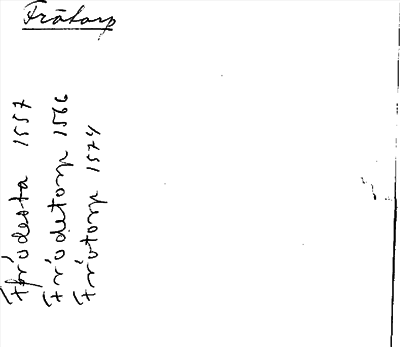 Frötorp
Fröderta 1557
Frödetorp 1566
Frötorp 1574